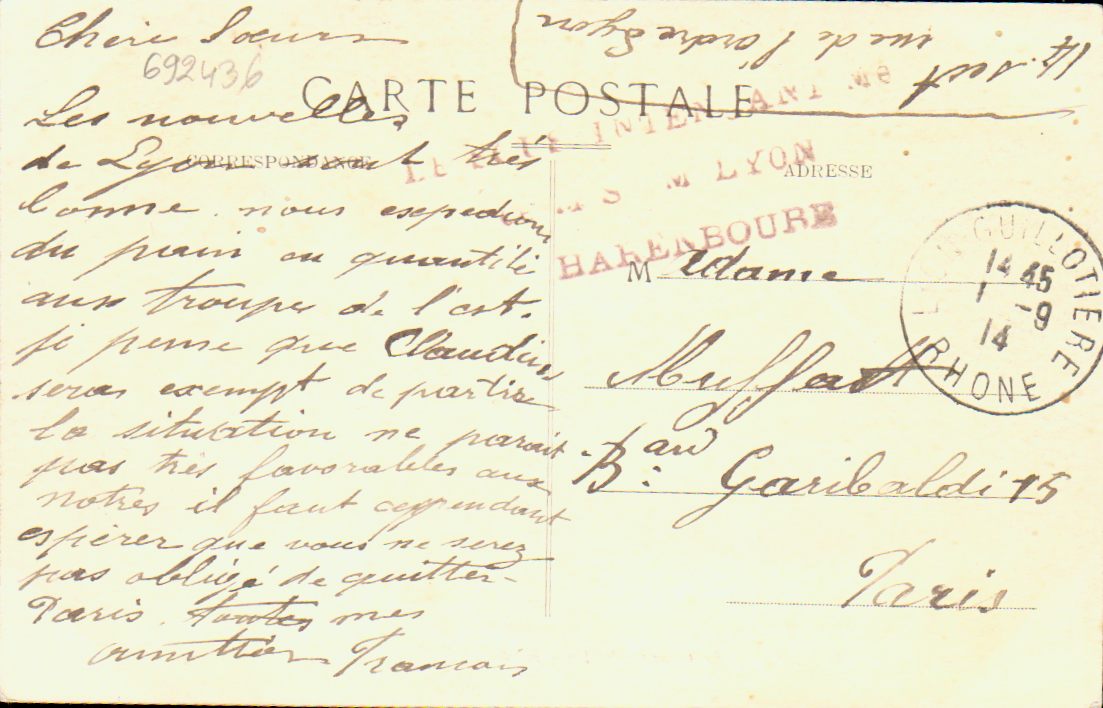 Chère Sœurs
692436
CARTE POSTALE
Les nouvelles
de Lyon sont très
bonne. nous expedions
du pain en quantité
aux troupes de l'est.
je pense que Claudius
seras exempt de partire
la situation ne parait
pas très favorables aux
notres il faut cependant
espérer que vous ne serez
pas obligé de quitter
Paris. toutes mes
amitties Francois
CORRESPONDANCE
rue de l'ordre Lyon
INTENDANT
LYON
HARENBOURE
ADRESSE
Madame
Muffat
B.ard Garibaldi 15
Paris
LYON GUILLOTIERE
14 45
1 -9
14
RHONE